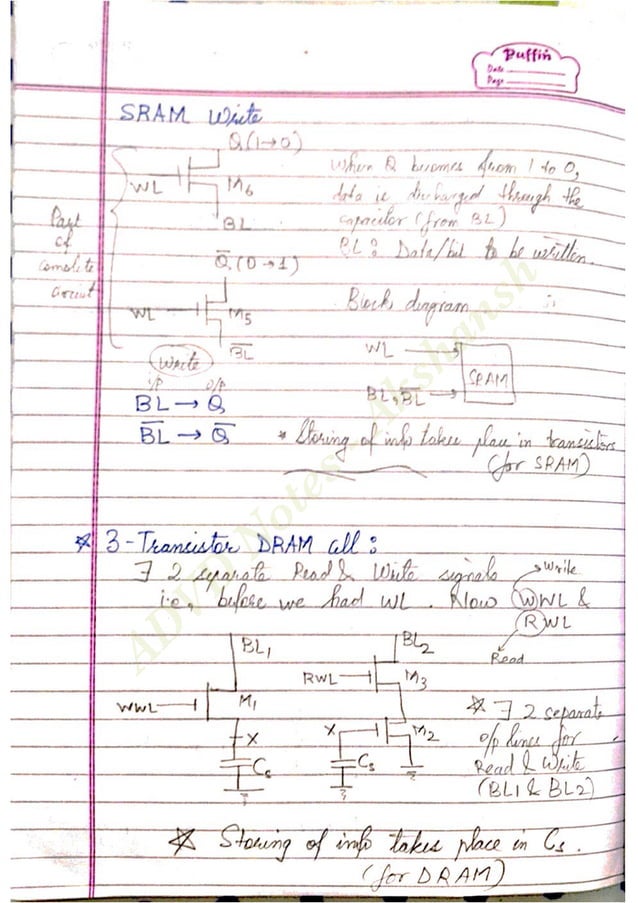 Puffin
Date
Page
SRAM Write
Q (1→0)
WL
M6
BL
When Q becomes from 1 to 0,
data is discharged through the
capacitor (from BL)
BL : Data/bit to be written.
Part
of
complete
circuit
Q̅ (0→1)
WL
M5
B̅L̅
Block diagram :
WL
BL, B̅L̅
SRAM
Write
i/p o/p
BL → Q
B̅L̅ → Q̅
* Storing of info takes place in transistors
(for SRAM)
ADVD Notes - Akshansh
* 3-Transistor DRAM cell :
∃ 2 separate Read & Write signals
i.e., before we had WL. Now WWL &
RWL
Write
Read
BL1
WWL
M1
X
Cs
BL2
RWL
M3
X
M2
Cs
* ∃ 2 separate
o/p lines for
Read & Write
(BL1 & BL2)
* Storing of info takes place in Cs.
(for DRAM)